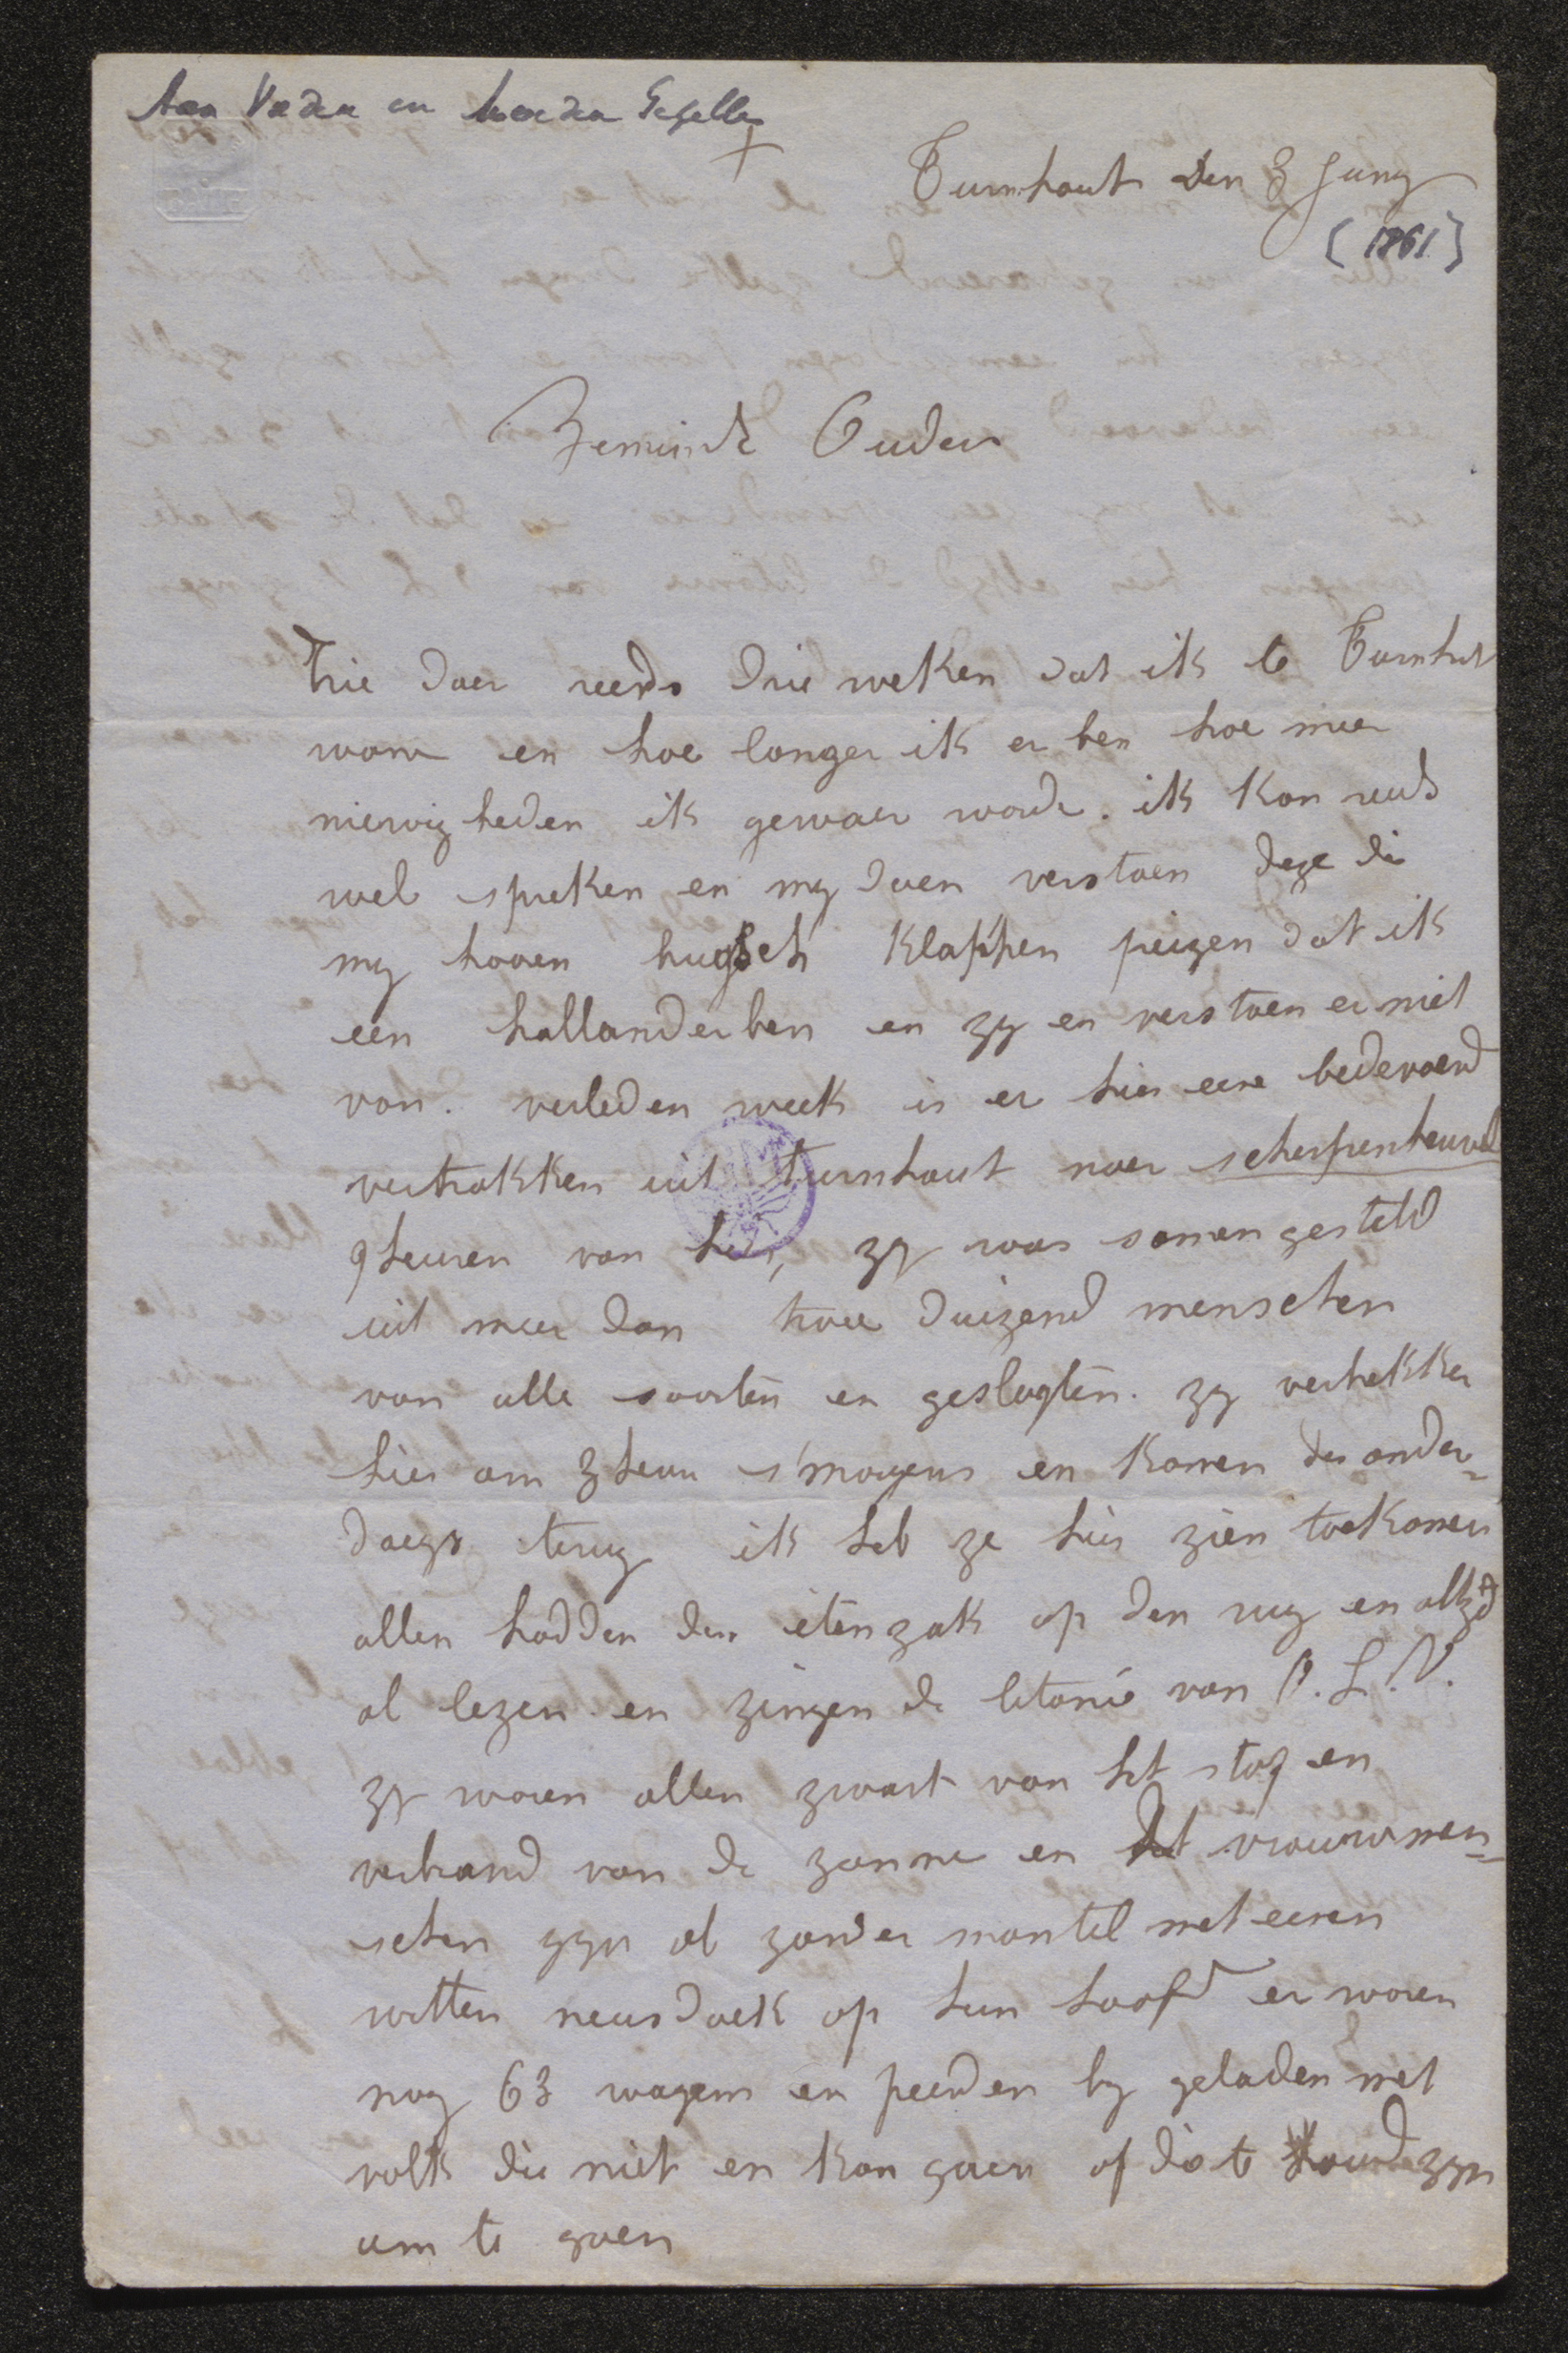 Aan Vader en Moeder Gezelle
+
Turnhout den 3 Juny
[1861]
Beminde Ouders
Zie daer reeds drie weken dat ik te Turnhut
wone en hoe langer ik er ben hoe meer
niewigheden ik gewaer worde. ik kan reeds
wel spreken en my doen verstaen deze die
my hooren brugsch klappen peizen dat ik
een hollander ben en zy en verstaen er niet
van. verleden week is er hier eene bedevaerd
vertrokken uit turnhout naer scherpenheuvel
9 heuren van hier, zy was samengesteld
uit meer dan twee duizend menschen
van alle soorten en geslagten. zy vertrekken
hier om 3 heuren s'morgens en komen des ander=
daegs terug ik heb ze hier zien toekomen
allen hadden den etenzak op den rug en altyd
al lezen en zingen de litanie van O. L. V.
zy waren allen zwart van het stof en
verbrand van de zonne en het vrouwmen=
schen zyn al zonder mantel met eenen
witten neusdoek op hun hoofd er waren
nog 63 wagens en peerden by geladen met
volk die niet en kan gaen of die te oud zyn
om te gaen